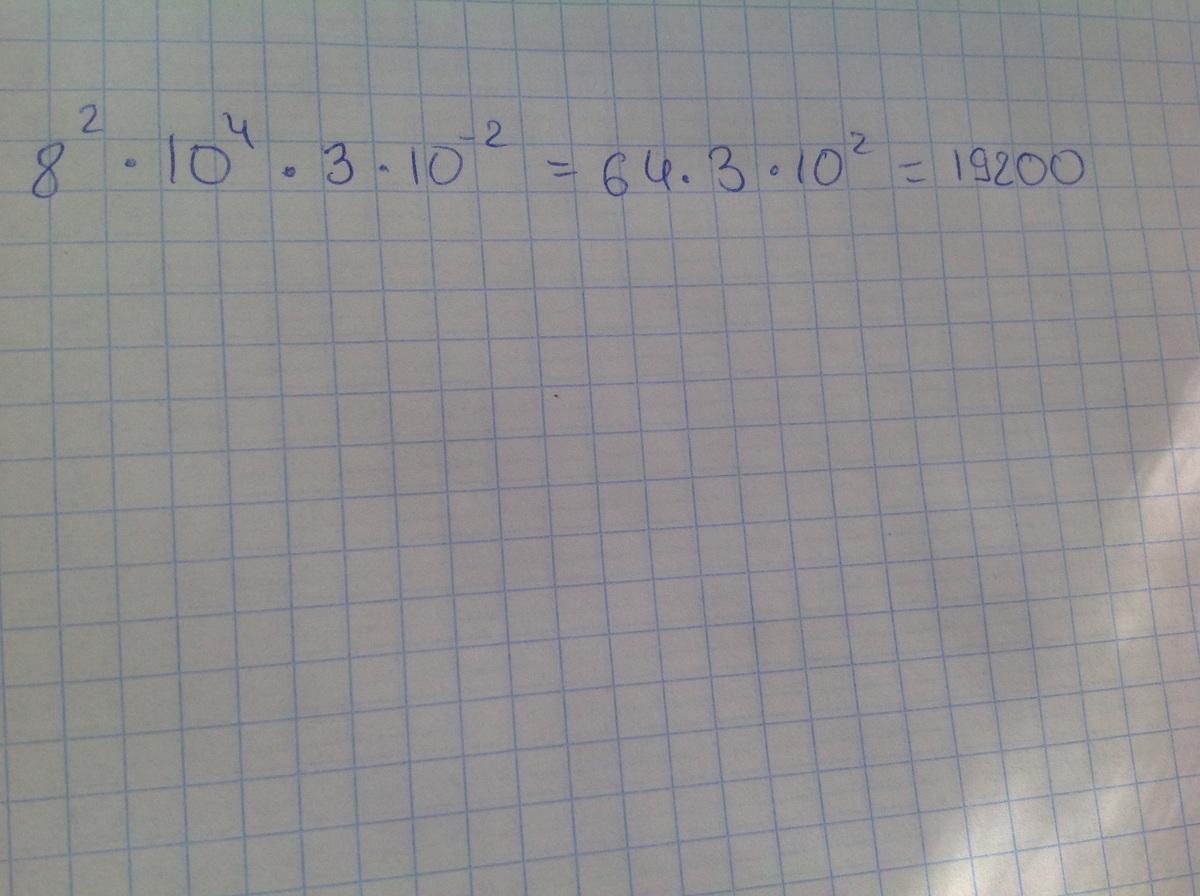 8² · 10⁴ · 3 · 10⁻² = 64 · 3 · 10² = 19200